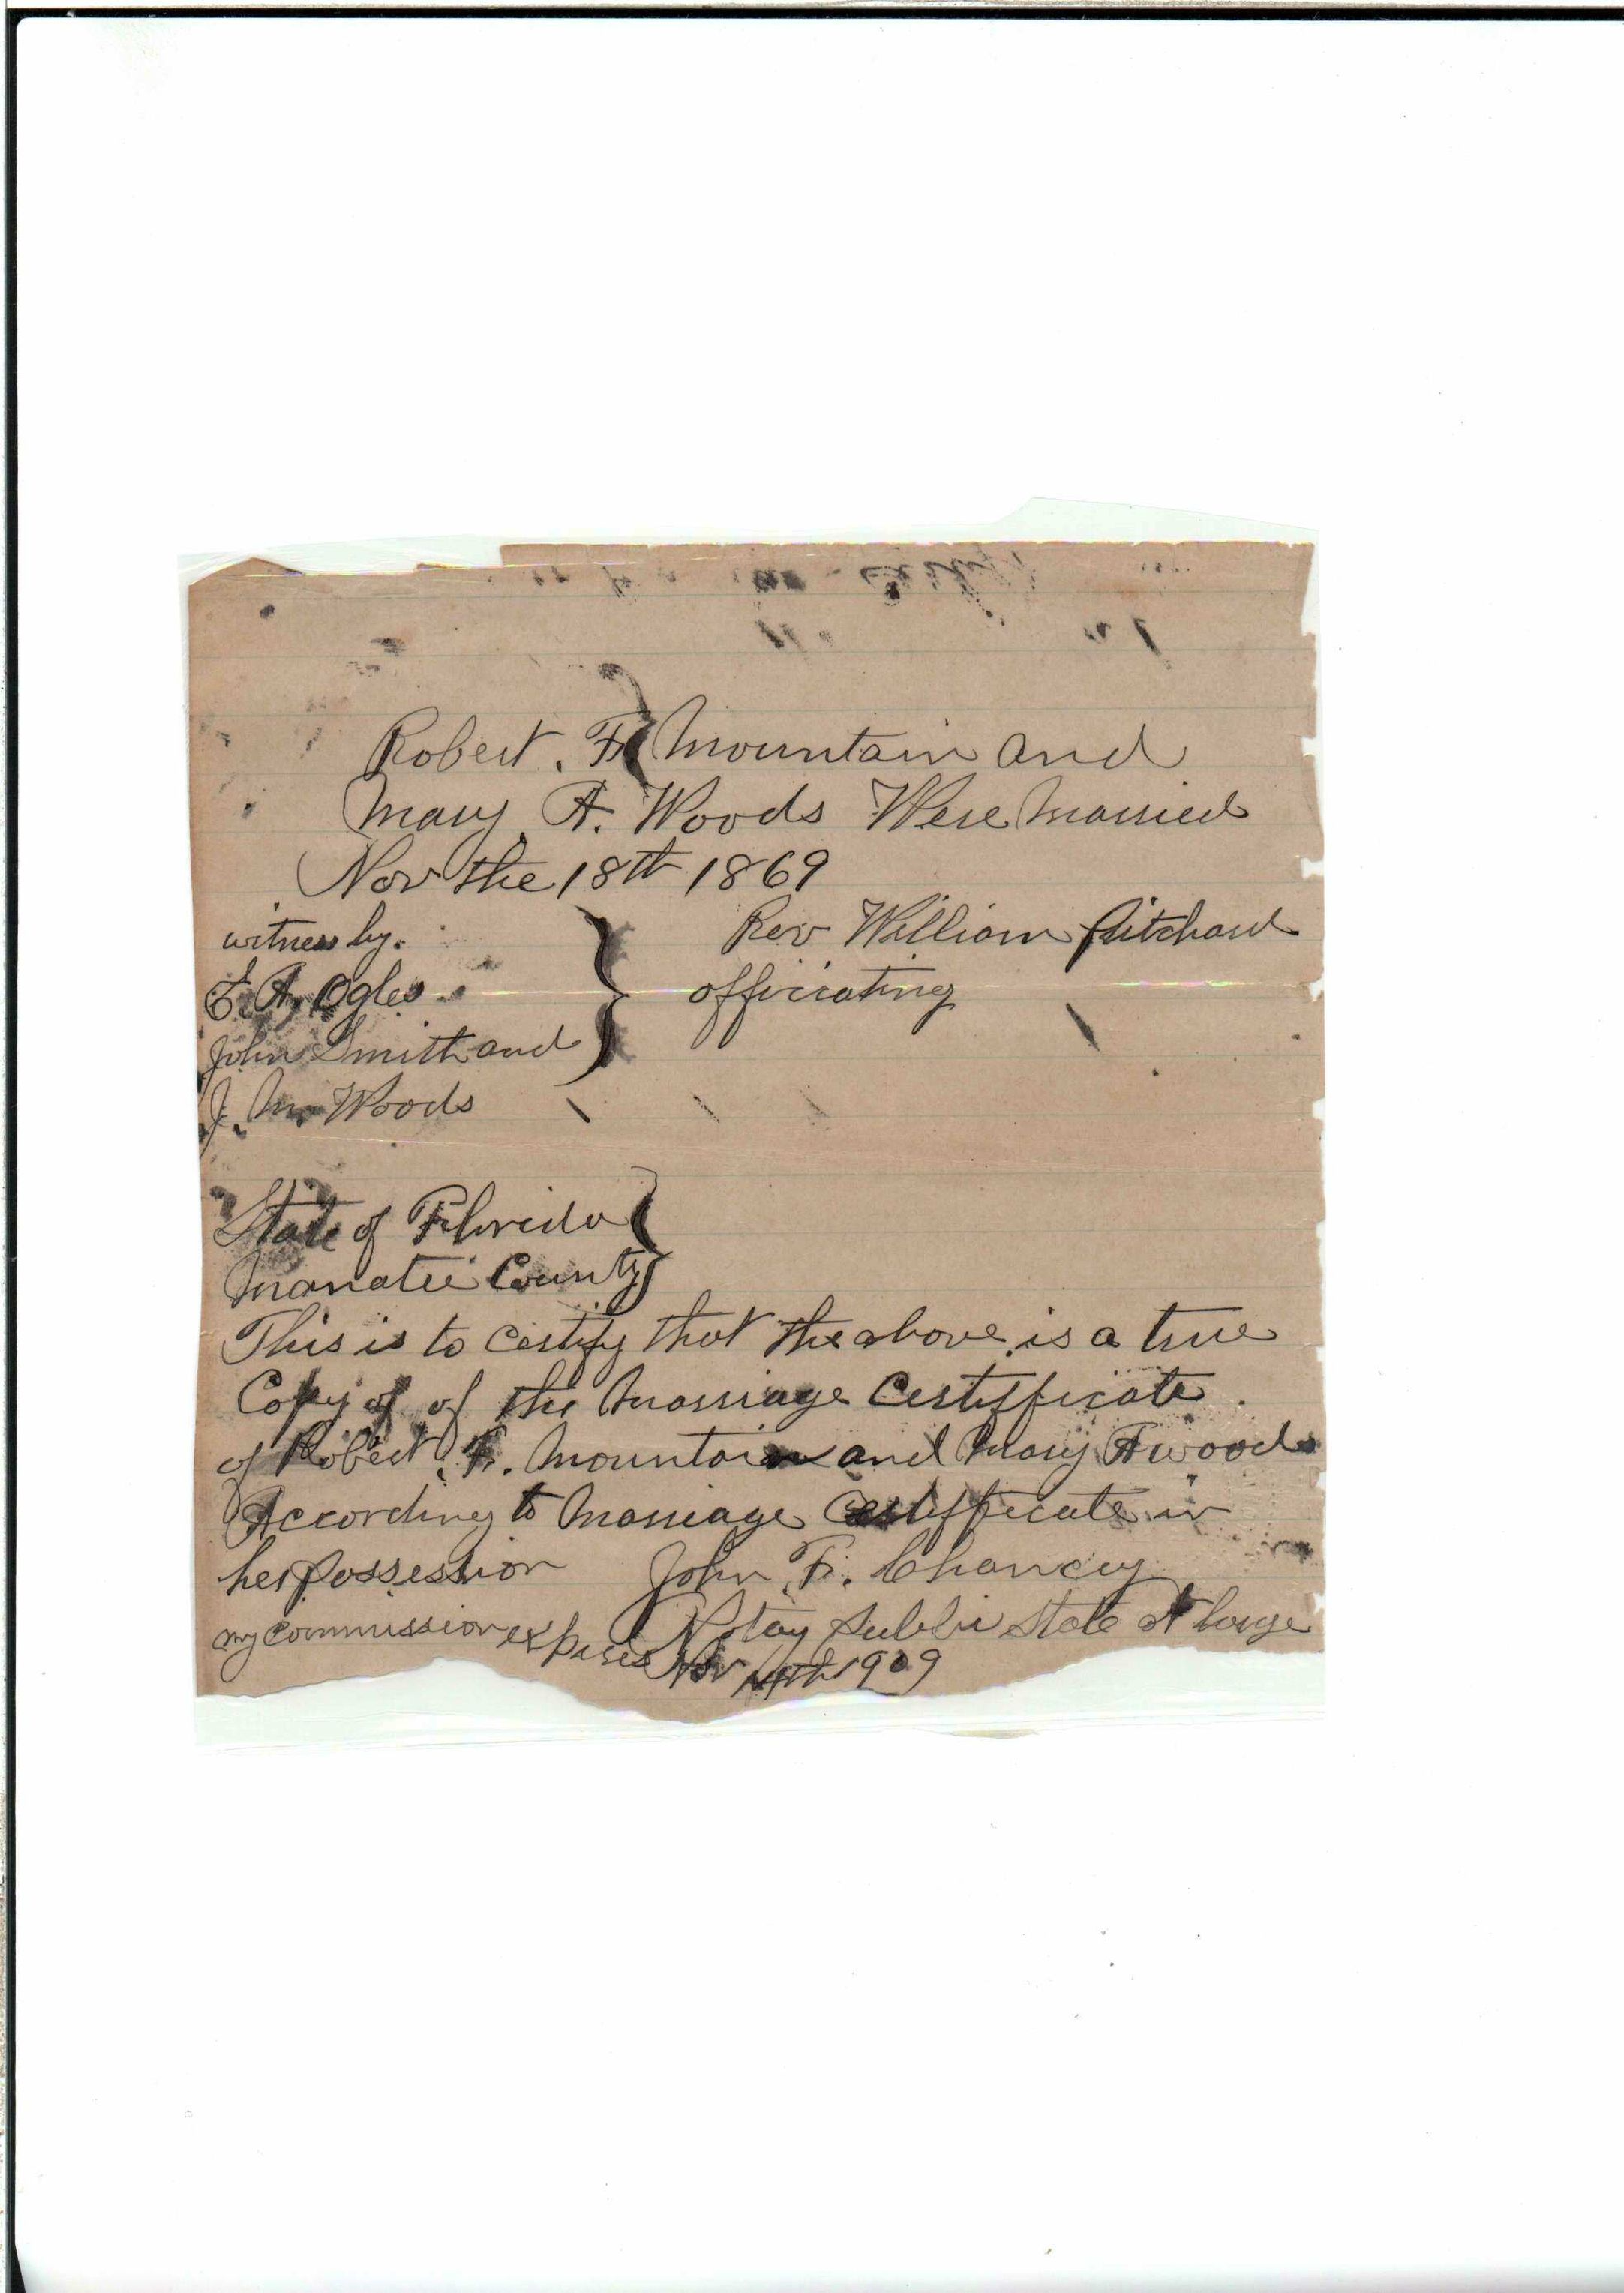 Robert. F. Mountain and
Mary A. Woods Were Married
Nov the 18th 1869
witness by.
E. A. Ogles
John Smith and
J. M. Woods
Rev William Pritchard
officiating
State of Florida
Manatee County
This is to certify that the above is a true
Copy of of the Marriage Certifficate
of Robert F. Mountain and Mary A woods
According to Marriage Certifficate in
her possession John F. Chancey
Notay Public State at large
my commission expires Nov 1909